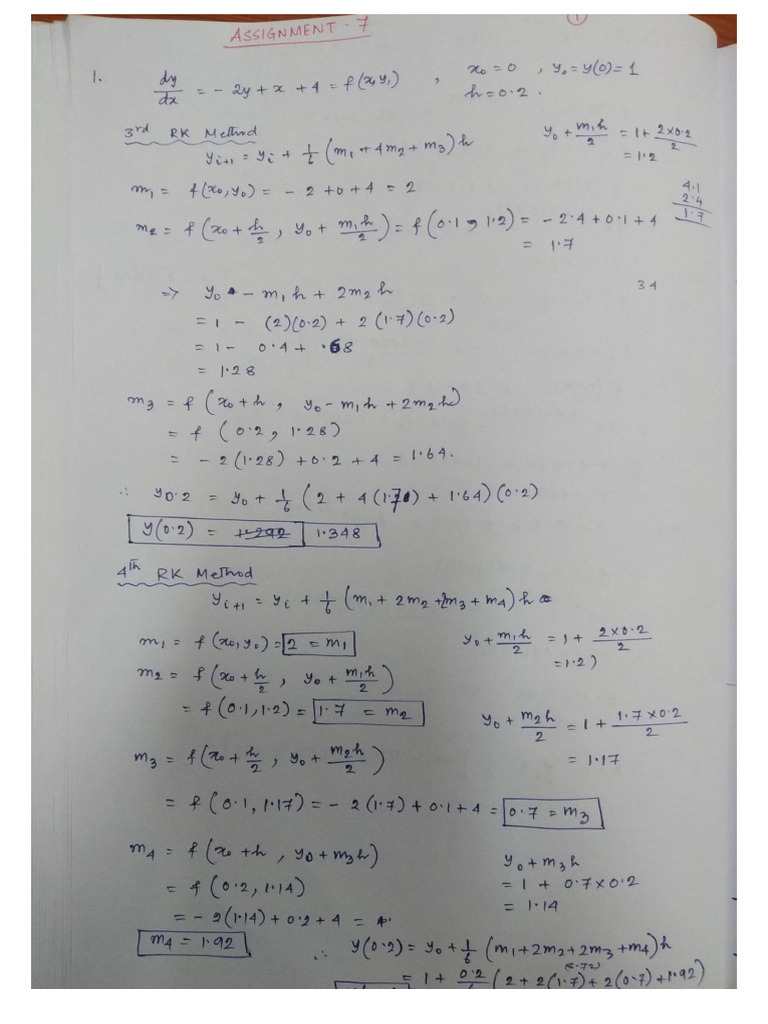 ①
ASSIGNMENT - 7
1. dy/dx = - 2y + x + 4 = f(x,y,) , x₀ = 0 , y₀ = y(0) = 1
h = 0.2 .
3rd RK Method
yᵢ₊₁ = yᵢ + 1/6 (m₁ + 4m₂ + m₃) h
y₀ + m₁h/2 = 1 + 2×0.2/2
= 1.2
m₁ = f(x₀, y₀) = - 2 + 0 + 4 = 2
4.1
2.4
1.7
m₂ = f (x₀ + h/2 , y₀ + m₁h/2) = f (0.1 , 1.2) = - 2.4 + 0.1 + 4
= 1.7
34
⇒ y₀ - m₁h + 2m₂h
= 1 - (2)(0.2) + 2 (1.7)(0.2)
= 1 - 0.4 + .68
= 1.28
m₃ = f (x₀ + h , y₀ - m₁h + 2m₂h)
= f (0.2 , 1.28)
= - 2 (1.28) + 0.2 + 4 = 1.64.
∴ y0.2 = y₀ + 1/6 (2 + 4 (1.70) + 1.64) (0.2)
y(0.2) = 1.292 1.348
4th RK Method
yᵢ₊₁ = yᵢ + 1/6 (m₁ + 2m₂ + 2m₃ + m₄) h
m₁ = f(x₀, y₀) = 2 = m₁
y₀ + m₁h/2 = 1 + 2×0.2/2
= 1.2)
m₂ = f(x₀ + h/2 , y₀ + m₁h/2)
= f(0.1, 1.2) = 1.7 = m₂
y₀ + m₂h/2 = 1 + 1.7×0.2/2
= 1.17
m₃ = f(x₀ + h/2 , y₀ + m₂h/2)
= f(0.1, 1.17) = - 2 (1.7) + 0.1 + 4 = 0.7 = m₃
m₄ = f(x₀ + h , y₀ + m₃h)
y₀ + m₃h
= 1 + 0.7×0.2
= 1.14
= f(0.2, 1.14)
= - 2(1.14) + 0.2 + 4 =
m₄ = 1.92
∴ y(0.2) = y₀ + 1/6 (m₁ + 2m₂ + 2m₃ + m₄) h
= 1 + 0.2/6 (2 + 2(1.7) + 2(0.7) + 1.92)